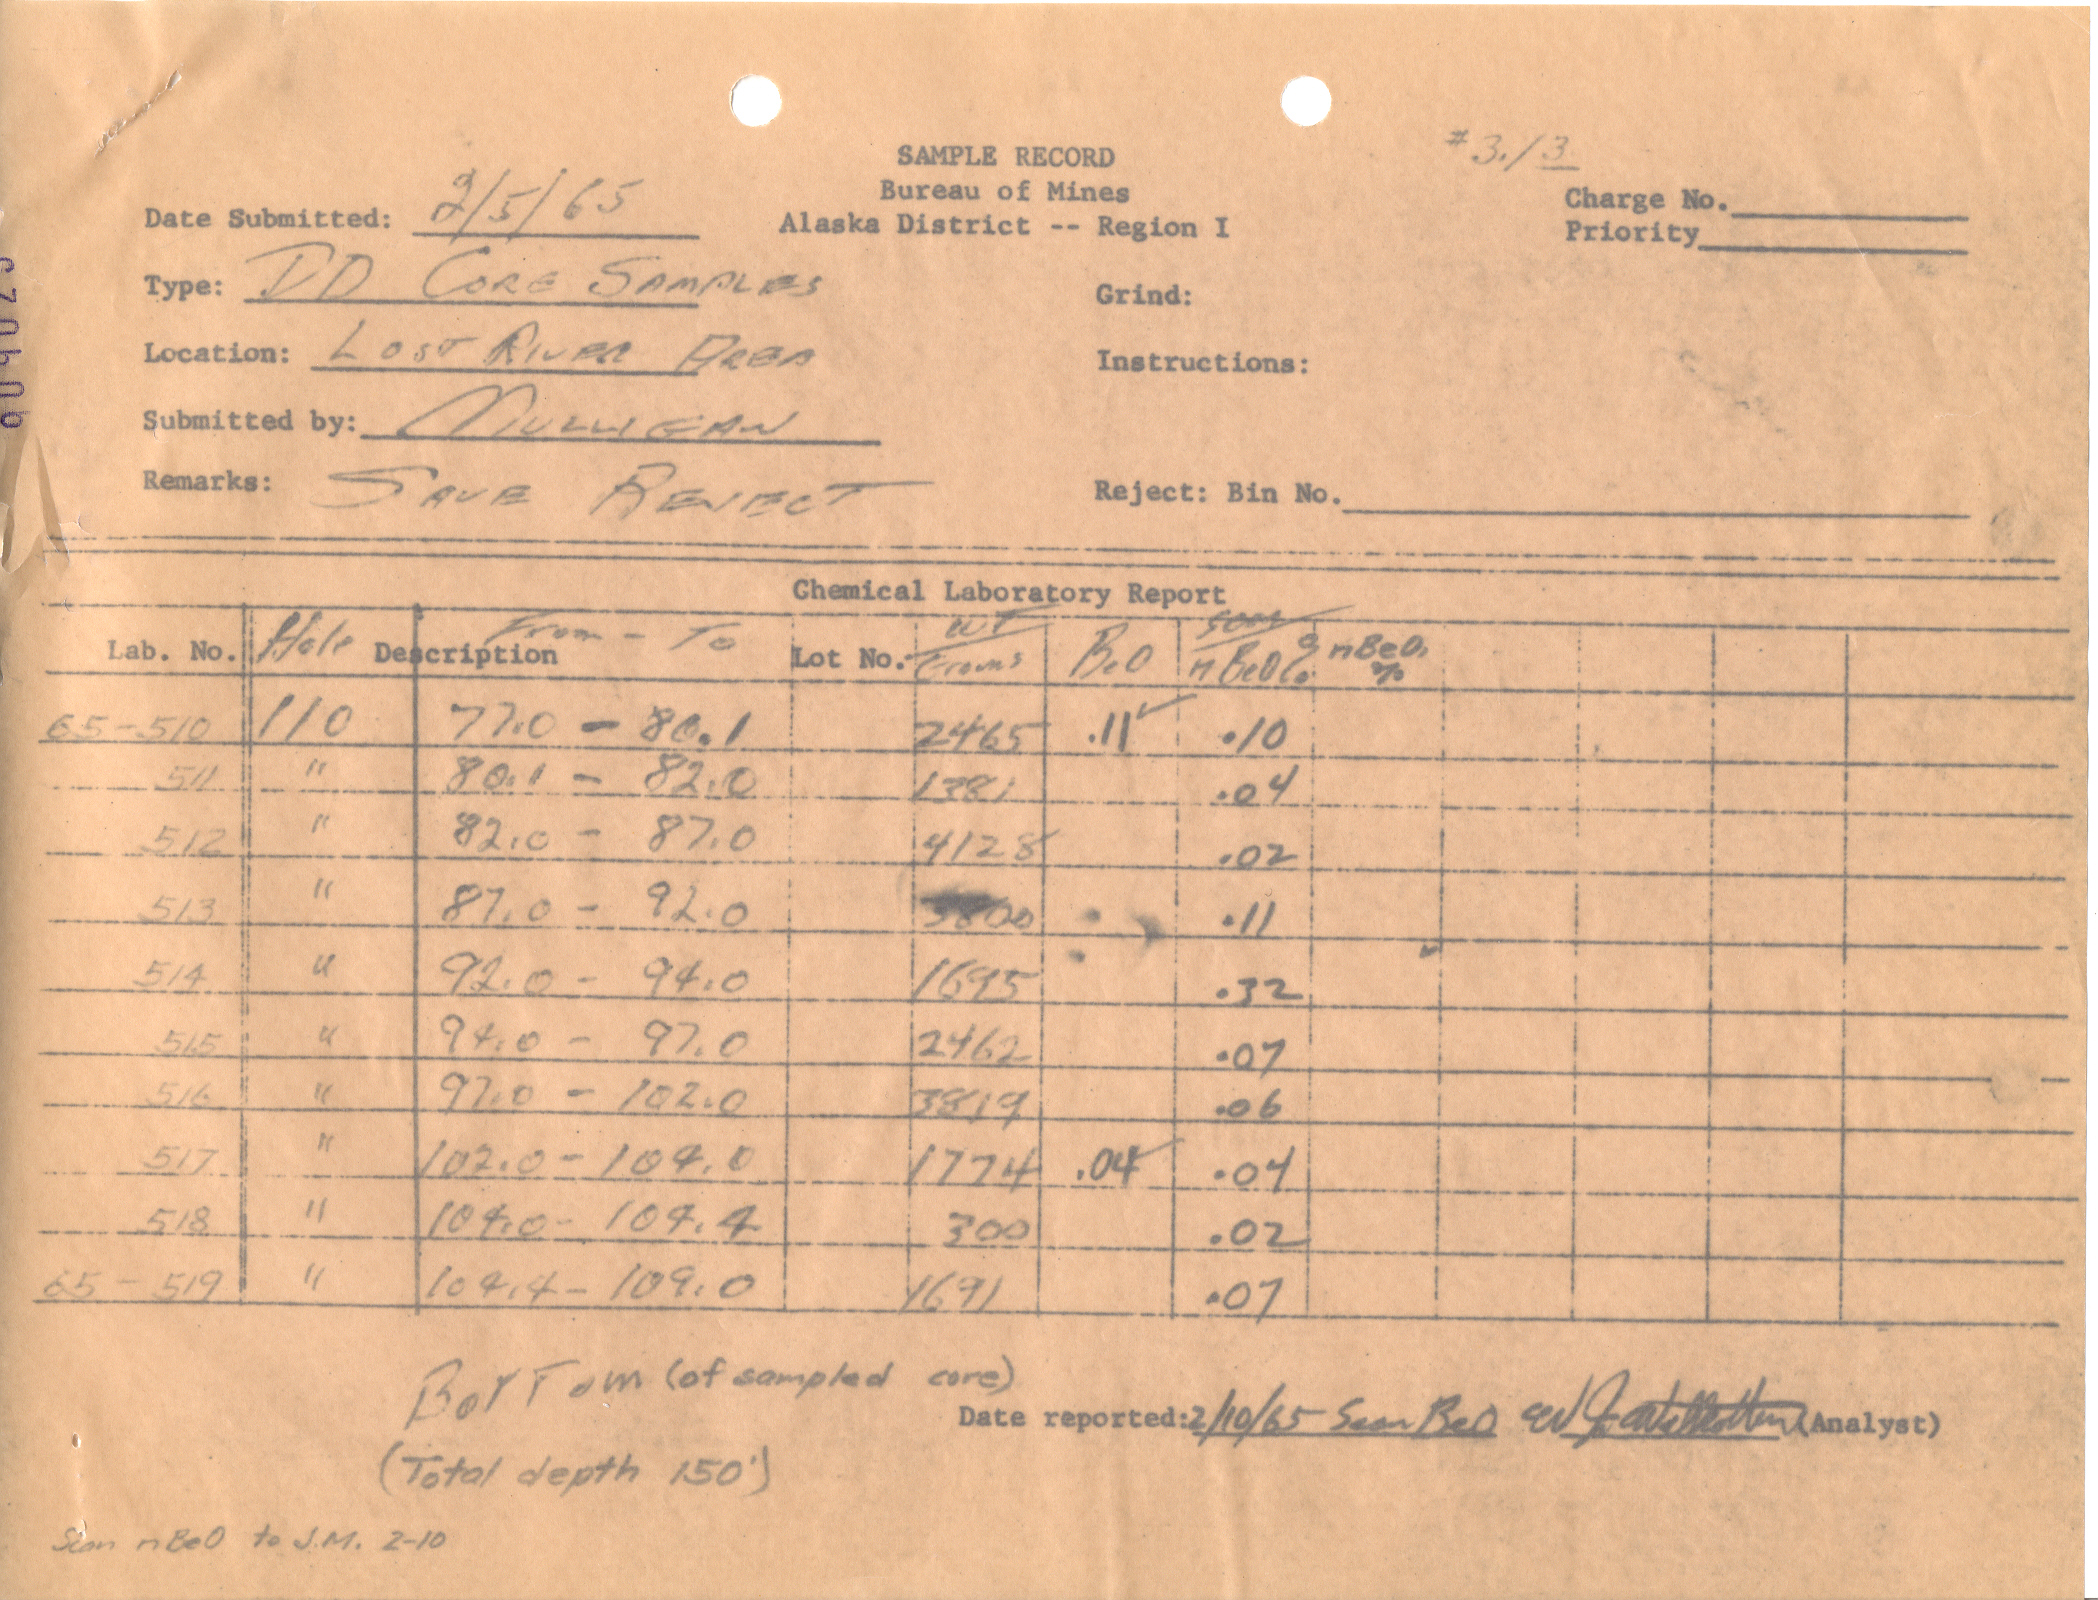 #3./3
SAMPLE RECORD
Bureau of Mines
Alaska District -- Region I
Charge No.
Priority
Date Submitted: 2/5/65
Type: DD CORE SAMPLES
Grind:
Location: LOST RIVER AREA
Instructions:
Submitted by: MULLIGAN
Remarks: SAVE REJECT
Reject: Bin No.
Chemical Laboratory Report
Lab. No. Hole Description From - To Lot No. WT Grams BeO Scan nBeO % nBeO, %
65-510 110 77.0 - 80.1 2465 .11 ✓ .10
511 " 80.1 - 82.0 1381 .04
512 " 82.0 - 87.0 4128 .02
513 " 87.0 - 92.0 3800 .11
514 " 92.0 - 94.0 1695 .32
515 " 94.0 - 97.0 2462 .07
516 " 97.0 - 102.0 3819 .06
517 " 102.0 - 104.0 1774 .04 ✓ .04
518 " 104.0 - 104.4 300 .02
65-519 " 104.4 - 109.0 1691 .07
BOTTOM (of sampled core)
Date reported: 2/10/65 Scan BeO (Analyst)
(Total depth 150')
Scan nBeO to J.M. 2-10